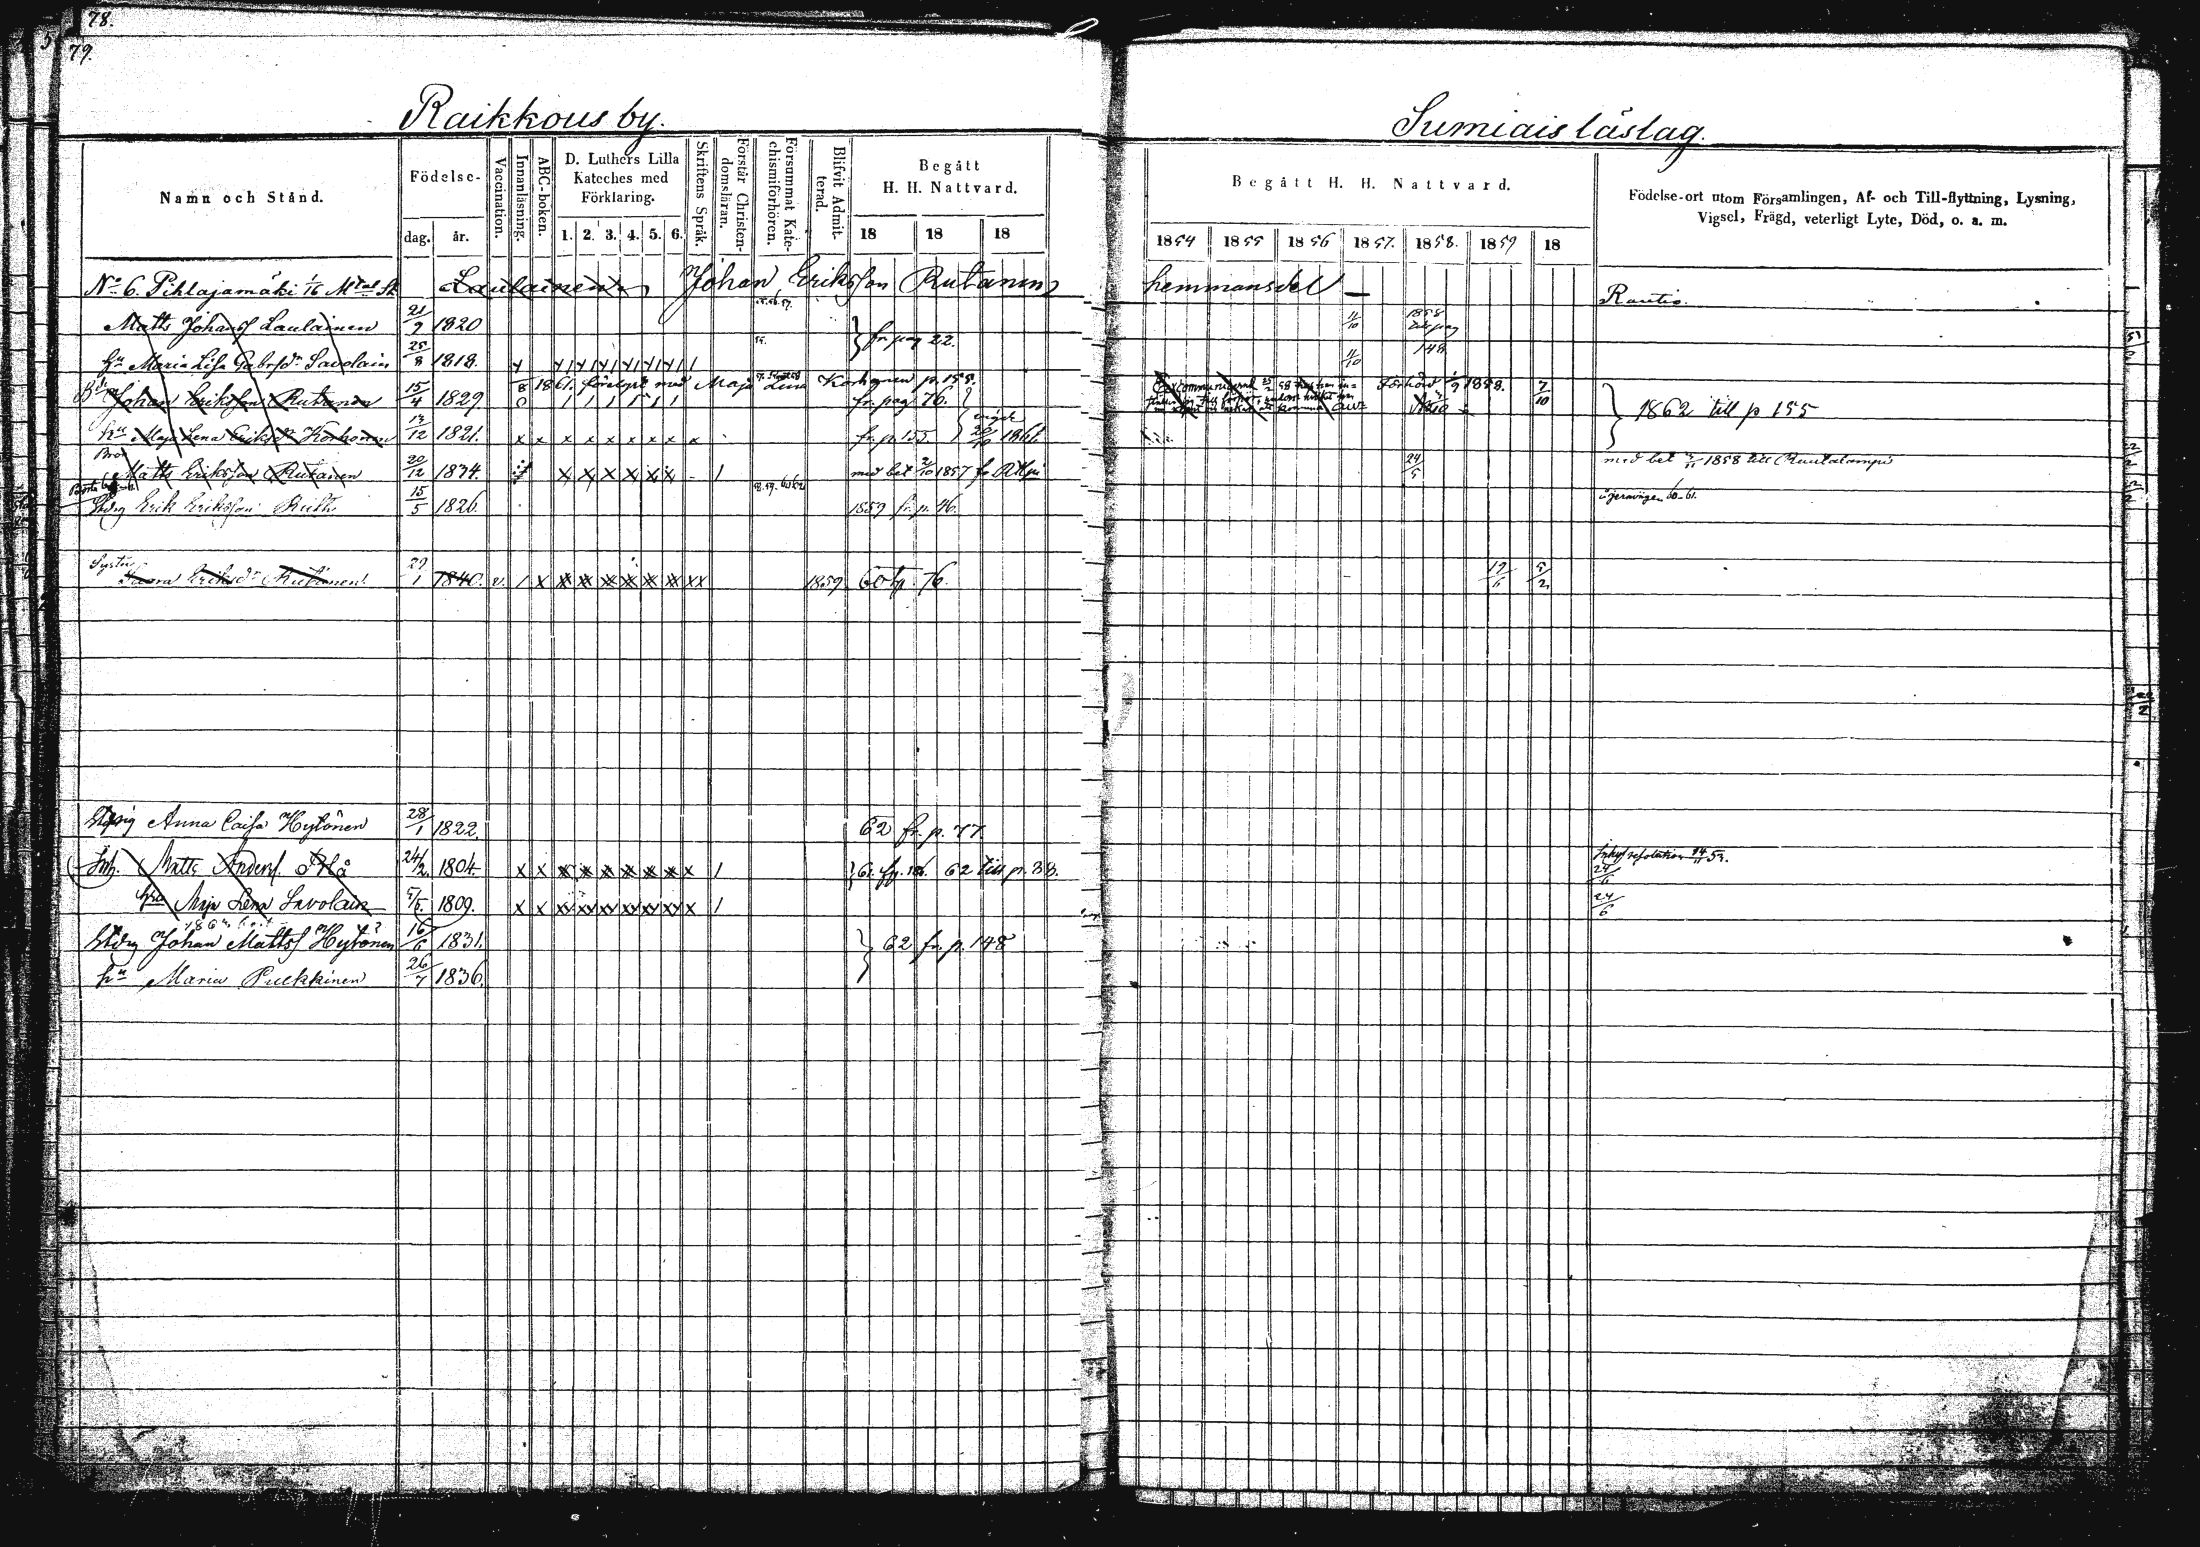 78.
79.
Raikkous by.
Sumiais läslag.
Namn och Stånd.
Födelse-
dag. år.
Vaccination.
Innanläsning.
ABC-boken.
D. Luthers Lilla Kateches med Förklaring.
1. 2. 3. 4. 5. 6.
Skriftens Språk.
Förstår Christendomsläran.
Försummat Katechismiförhören.
Blifvit Admitterad.
Begått H. H. Nattvard.
18 18 18
Begått H. H. Nattvard.
1854 1855 1856 1857. 1858. 1859 18
Födelse-ort utom Församlingen, Af- och Till-flyttning, Lysning,
Vigsel, Frägd, veterligt Lyte, Död, o. a. m.
No 6. Pihlajamäki 1/16 Mtal Sk Laulainens Johan Eriksson Rutanens hemmansdel — Rautio.
Matts Johanss Laulainen 21/9 1820 fr pag 22. 4/10 1858
hu Maria Lisa Gabrsdr Savolain 25/8 1818. 4/10 148
8 1861. förelyst med Maja Lena Korhonen p. 155.
Johan Eriksson Rutanen 15/4 1829. fr. pag 76. Förhörd 1858. 7/10
1862 till p 155
hu Maja Lena Eriksdr Korhonen 13/12 1821. fr. p. 155. 20/10 1861.
Bror Matts Eriksson Rutanen 20/12 1834. med bet 2/10 1857 fr. 24/5 med bet 1858 till Rautalampi
Erik Eriksson Ruth 15/5 1826. 58.59.60.62 1859 fr. p. 46. 60-61.
Syster Saara Eriksdr Rutanen. 29/1 1840. v. 1859 60 fr. p. 76. 19/6 5/2
Anna Caisa Hytönen 28/1 1822. 62 fr. p. 77.
Inh. Matts Anders. 24/2. 1804. 62 till p. 38. 24/6
hu Maja Lena Savolain 5/5. 1809. 24/6
Johan Mattss Hytönen 16/6 1831. 62 fr. p. 148
hu Maria Pulkkinen 26/7 1836.